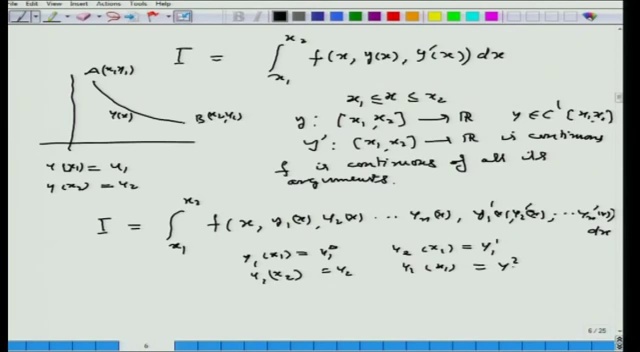 File Edit View Insert Actions Tools Help
I = ∫_{x₁}^{x₂} f(x, y(x), y'(x)) dx
A(x₁,y₁)
y(x)
B(x₂,y₂)
x₁ ≤ x ≤ x₂
y : [x₁, x₂] → ℝ y ∈ C' [x₁, x₂]
y' : [x₁, x₂] → ℝ is continuous
f is continuous of all its
arguments.
y(x₁) = y₁
y(x₂) = y₂
I = ∫_{x₁}^{x₂} f(x, y₁(x), y₂(x) ... yₙ(x), y₁'(x), y₂'(x), ... yₙ'(x)) dx
y₁(x₁) = y₁⁰ y₂(x₁) = y₁'
y₁(x₂) = y₂ y₂(x₁) = y²
6 / 25
6